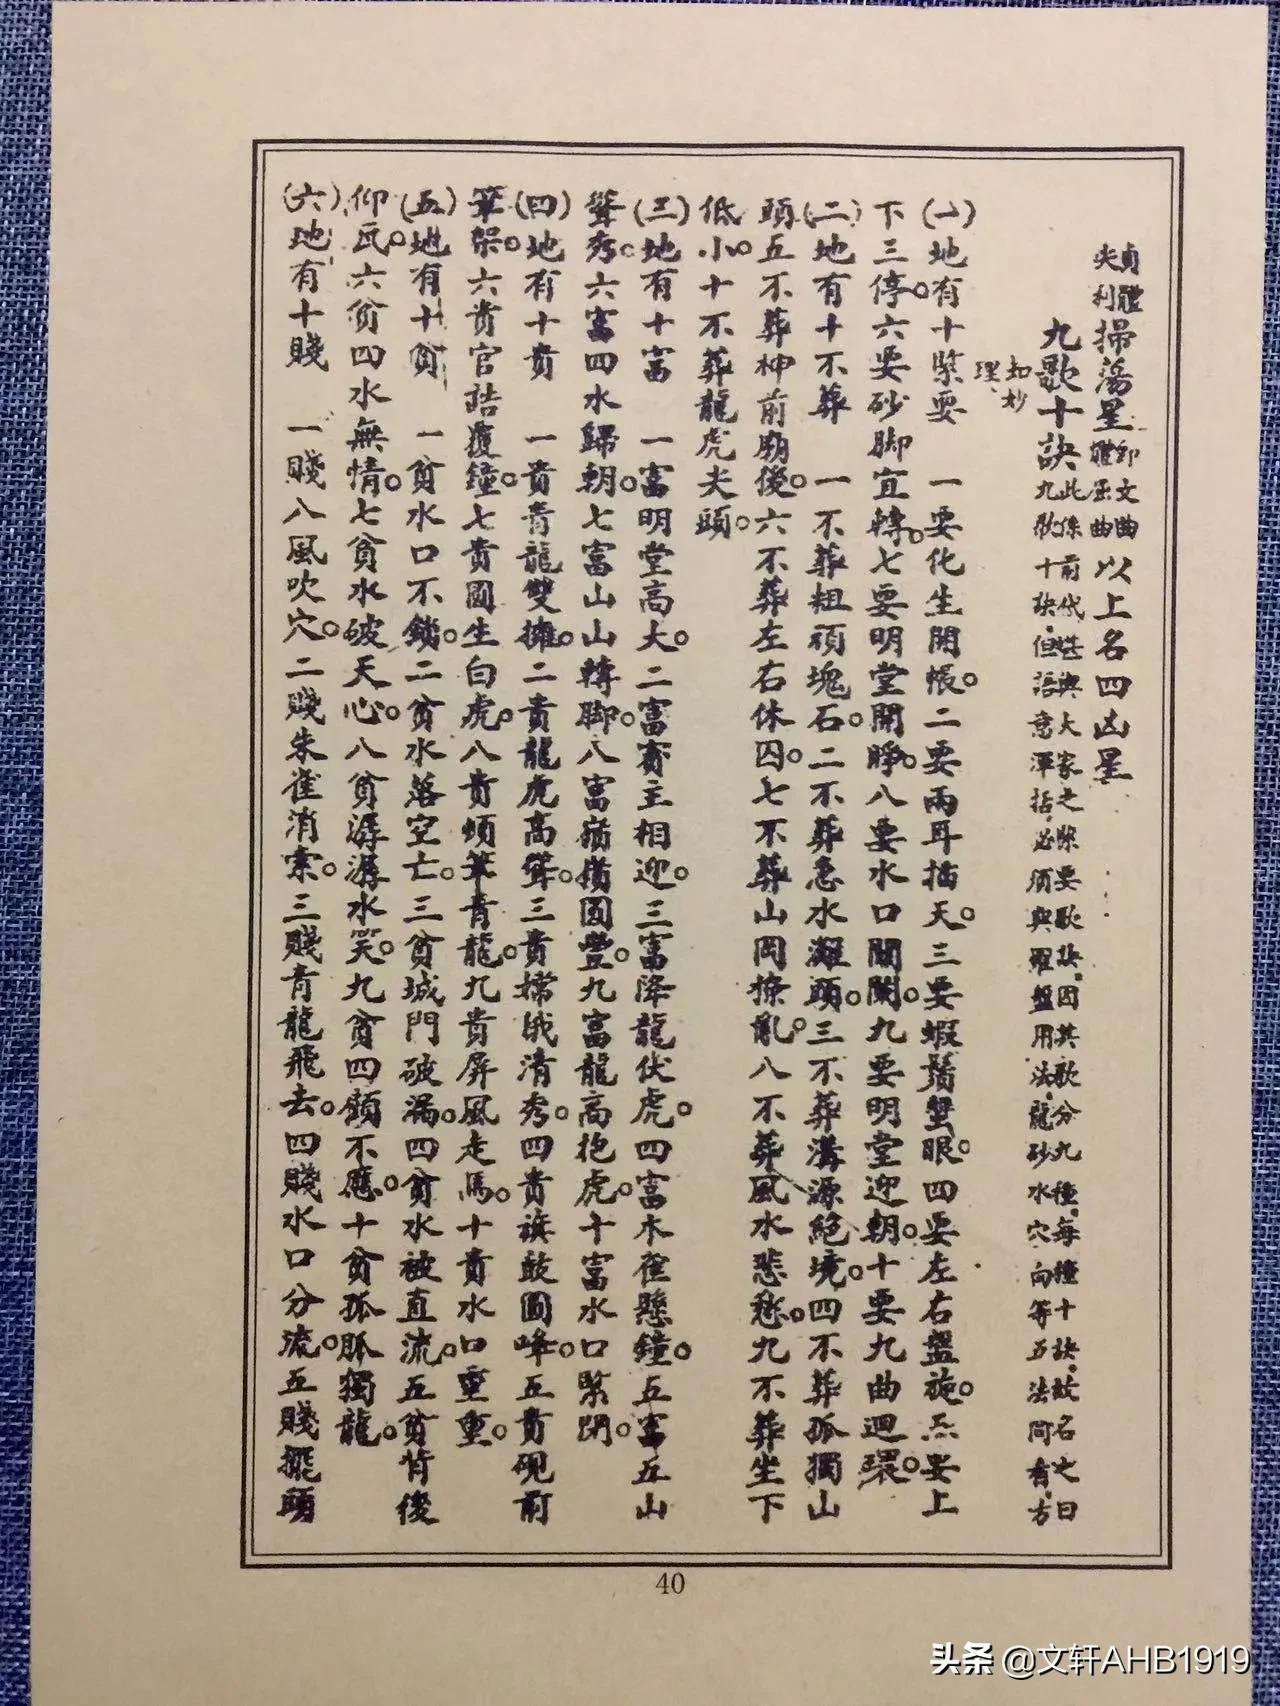 貞體
尖利 掃蕩星 即文曲體屈曲 以上名四凶星
九歌十訣 此係前代楚興大家之緊要歌訣因其歌分九種每種十訣故名之曰
九歌十訣但語意渾括必須與羅盤用法龍砂水穴向等五法同看方
知妙
理、
(一)地有十緊要 一要化生開帳。二要兩耳插天。三要蝦鬚蟹眼。四要左右盤旋。五要上
下三停。六要砂脚宜轉。七要明堂開睜。八要水口關闌。九要明堂迎朝。十要九曲迴環。
(二)地有十不葬 一不葬粗頑塊石。二不葬急水灘頭。三不葬溝源絕境。四不葬孤獨山
頭五不葬神前廟後。六不葬左右休囚。七不葬山岡撩亂。八不葬風水悲愁。九不葬坐下
低小。十不葬龍虎尖頭。
(三)地有十富 一富明堂高大。二富賓主相迎。三富降龍伏虎。四富木雀懸鐘。五富五山
聳秀。六富四水歸朝。七富山山轉脚。八富嶺嶺圓豐。九富龍高抱虎。十富水口緊閉。
(四)地有十貴 一貴青龍雙擁。二貴龍虎高聳。三貴嫦娥清秀。四貴旗鼓圓峰。五貴硯前
筆架。六貴官誥覆鐘。七貴圓生白虎。八貴頓筆青龍。九貴屏風走馬。十貴水口重重。
(五)地有十貧 一貧水口不鎖。二貧水落空亡。三貧城門破漏。四貧水被直流。五貧背後
仰瓦。六貧四水無情。七貧水破天心。八貧潺潺水笑。九貧四顧不應。十貧孤脈獨龍。
(六)地有十賤 一賤八風吹穴。二賤朱雀消索。三賤青龍飛去。四賤水口分流。五賤擺頭
40
头条 @文轩AHB1919